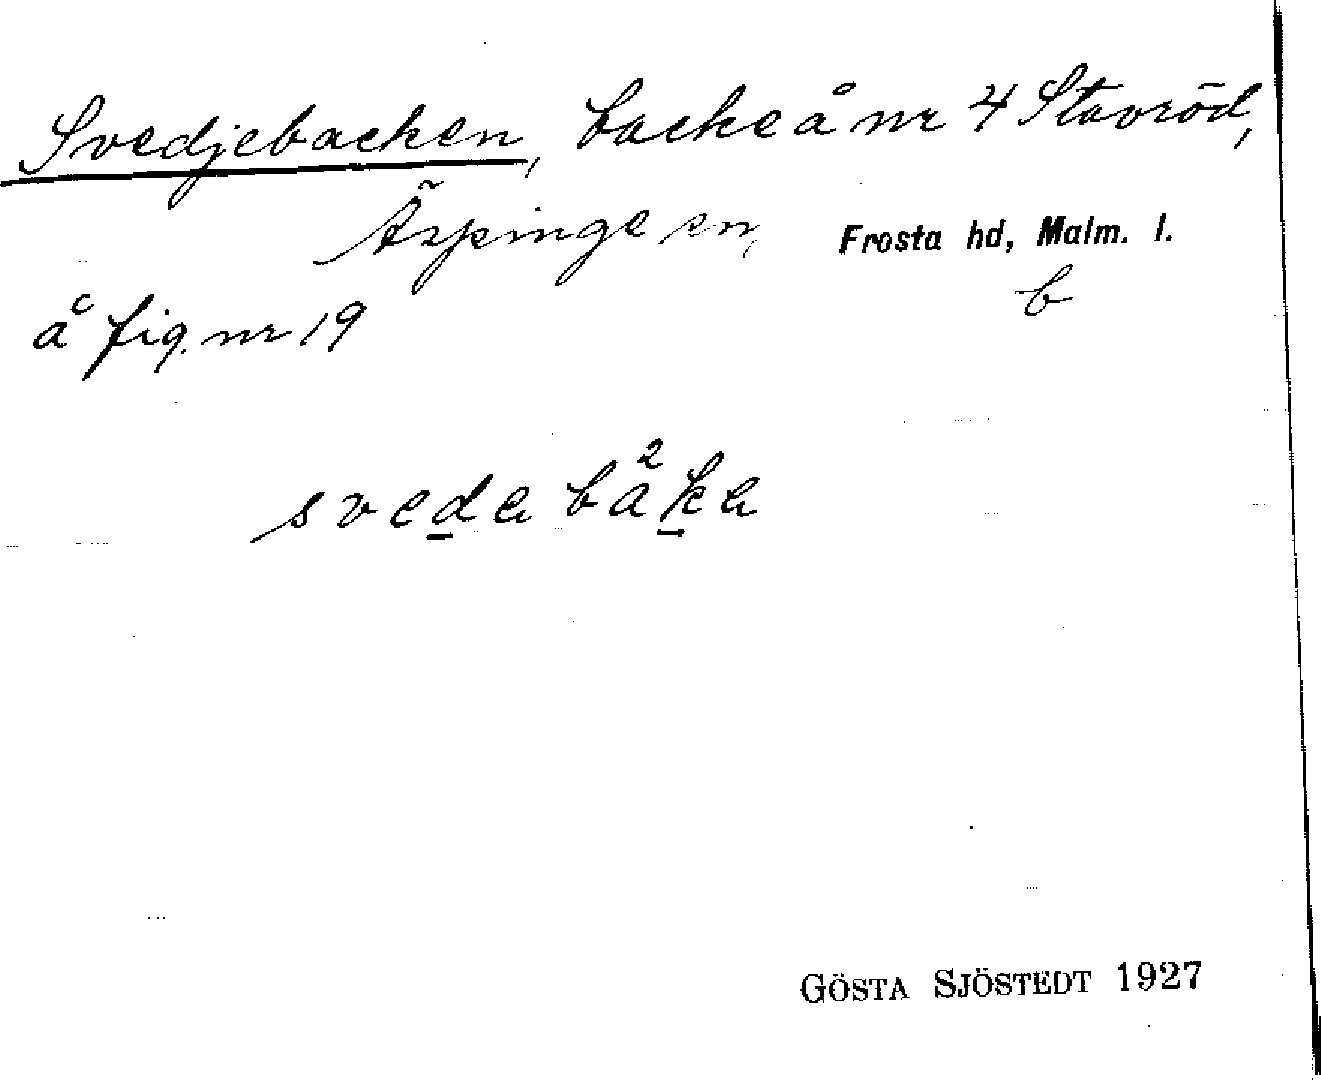 Svedjebacken, backe å nr 4 Stavröd,
Äspinge sn, Frosta hd, Malm. l.
b
å fig. nr 19
svedabåka
GÖSTA SJÖSTEDT 1927